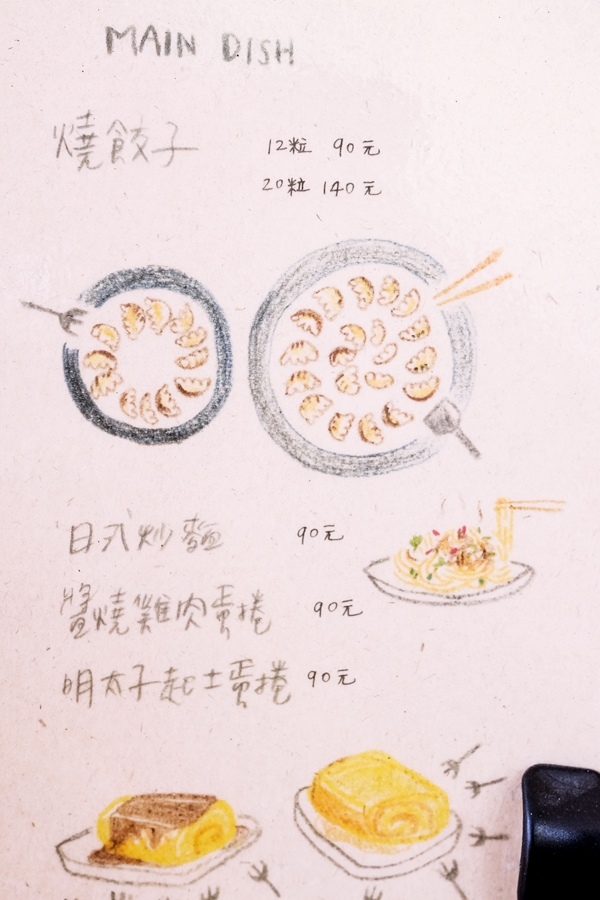 MAIN DISH
燒餃子
12粒 90元
20粒 140元
日式炒麵 90元
醬燒雞肉蛋捲 90元
明太子起士蛋捲 90元